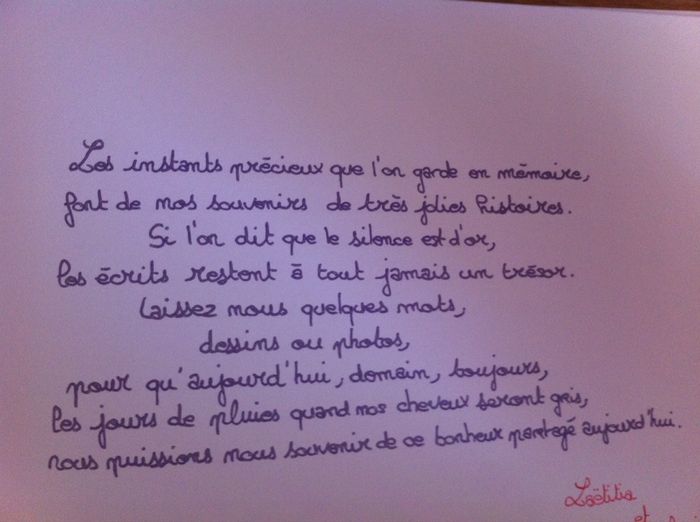 Les instants précieux que l'on garde en mémoire,
font de nos souvenirs de très jolies histoires.
Si l'on dit que le silence est d'or,
les écrits restent à tout jamais un trésor.
Laissez nous quelques mots,
dessins ou photos,
pour qu'aujourd'hui, demain, toujours,
les jours de pluies quand nos cheveux seront gris,
nous puissions nous souvenir de ce bonheur partagé aujourd'hui.
Laëtitia
et